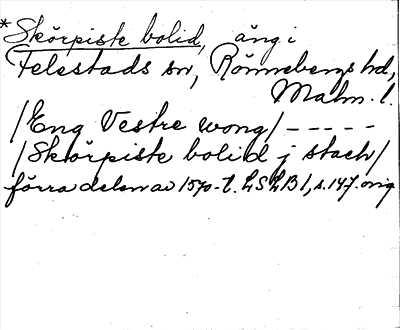 *Skörpiste bolid, äng i
Felestads sn, Rönnebergs hd,
Malm. l.
/Eng Vestre wong/ -----
/Skörpiste bolid j stach/
förra delen av 1570-t. LSLB1, s. 147. orig